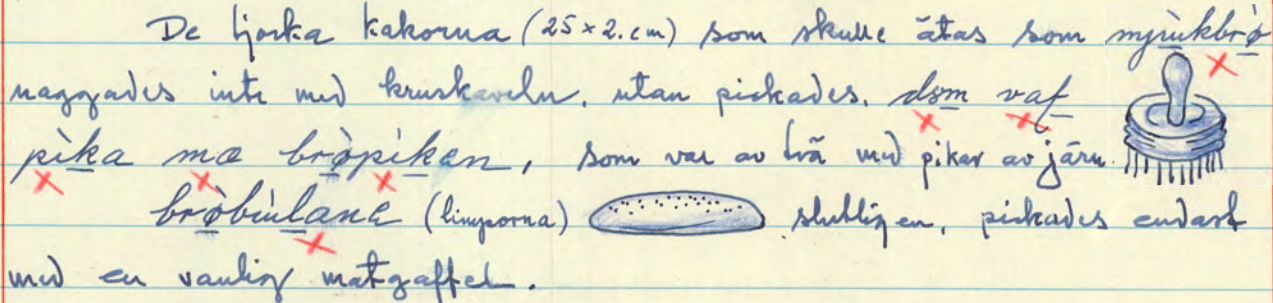 De tjocka kakorna (25 x 2. cm) som skulle ätas som mjukbrø
naggades inte med kruskaveln, utan pickades, dom vaf
pika mæ brøpiken, som var av trä med pikar av järn.
brøbulane (limporna) slutligen, pickades endast
med en vanlig matgaffel.